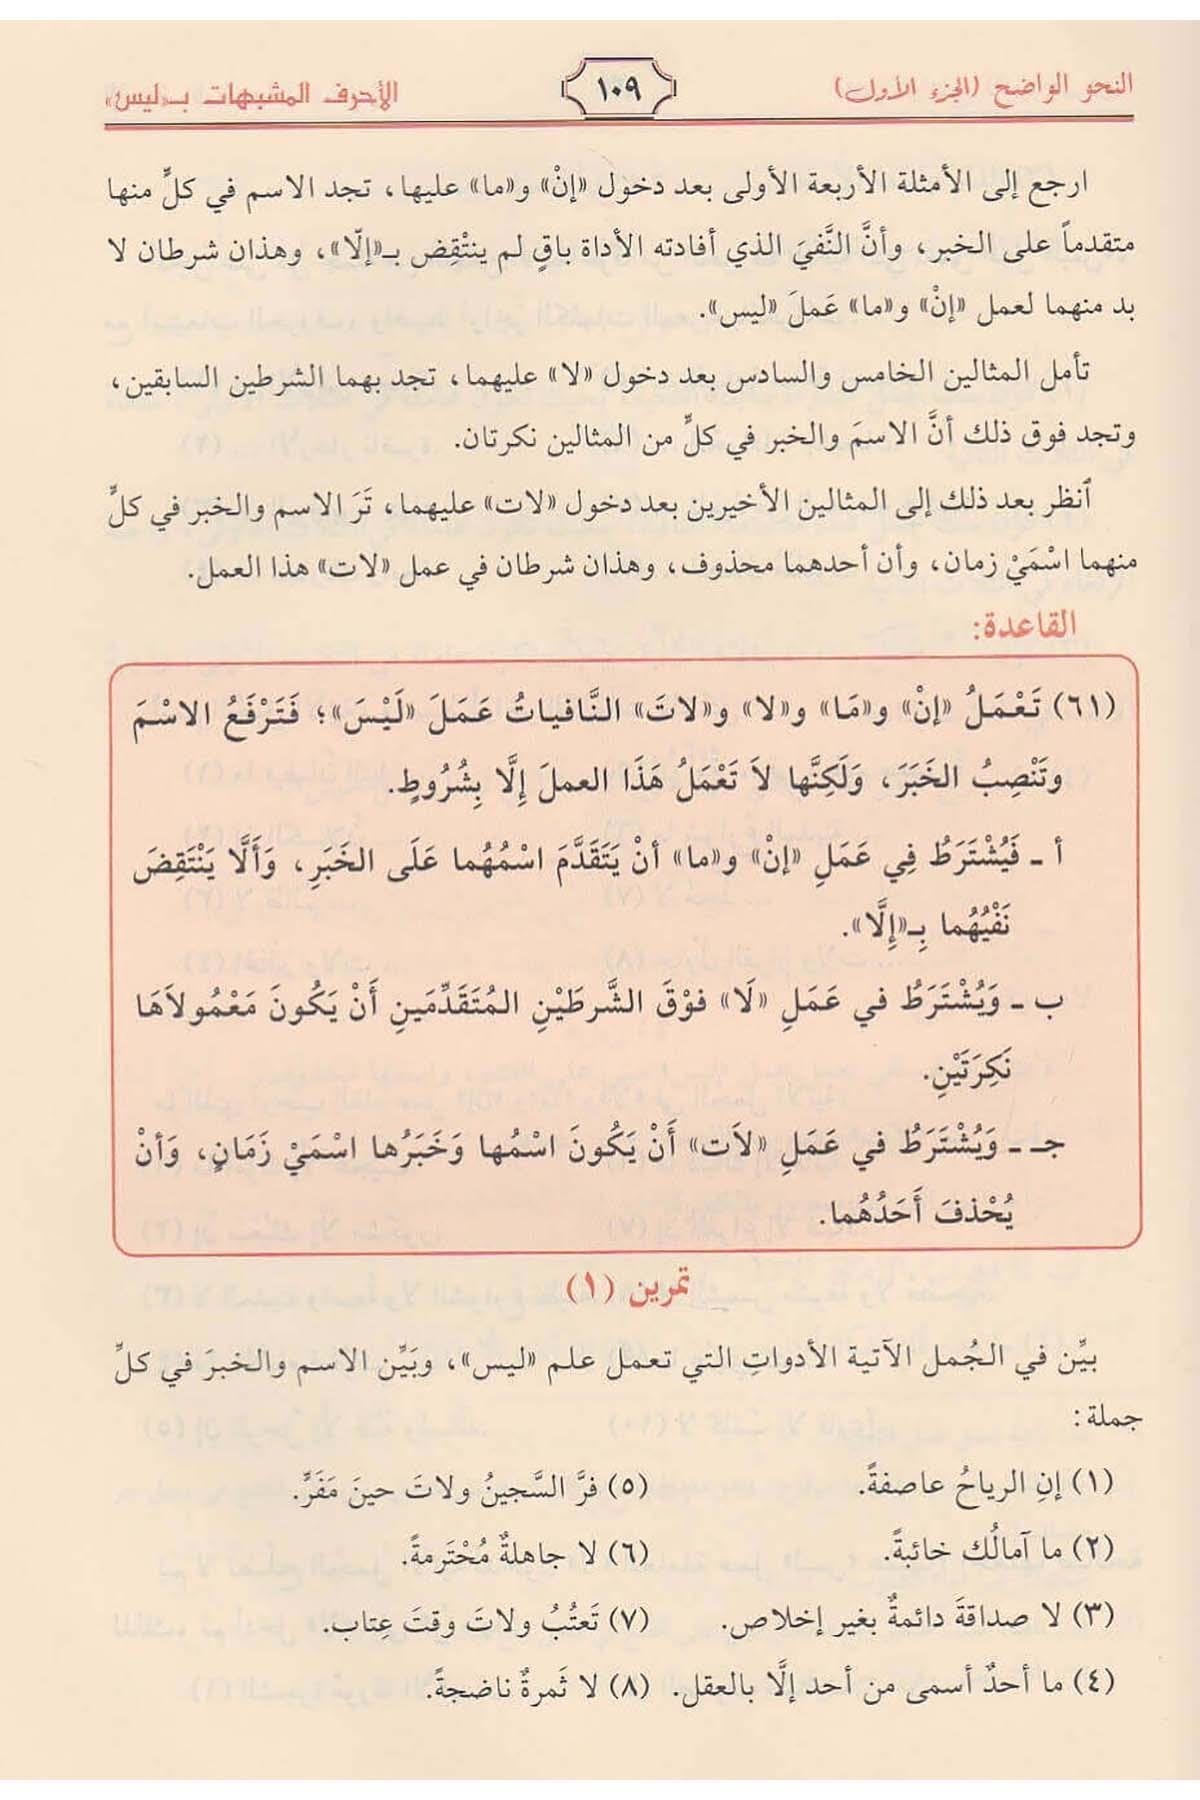 النحو الواضح (الجزء الأول)
١٠٩
الأحرف المشبهات بـ«ليس»
ارجع إلى الأمثلة الأربعة الأولى بعد دخول «إنْ» و«ما» عليها، تجد الاسم في كلٍّ منها
متقدماً على الخبر، وأنَّ النَّفيَ الذي أفادته الأداة باقٍ لم ينتْقِض بـ«إلّا»، وهذان شرطان لا
بد منهما لعمل «إنْ» و«ما» عَملَ «ليس».
تأمل المثالين الخامس والسادس بعد دخول «لا» عليهما، تجد بهما الشرطين السابقين،
وتجد فوق ذلك أنَّ الاسمَ والخبر في كلٍّ من المثالين نكرتان.
ٱنظر بعد ذلك إلى المثالين الأخيرين بعد دخول «لات» عليهما، تَرَ الاسم والخبر في كلٍّ
منهما اسْمَيْ زمان، وأن أحدهما محذوف، وهذان شرطان في عمل «لات» هذا العمل.
القاعدة:
(٦١) تَعْمَلُ «إنْ» و«مَا» و«لا» و«لاتَ» النَّافياتُ عَمَلَ «لَيْسَ»؛ فَتَرْفَعُ الاسْمَ
وتَنْصِبُ الخَبَرَ، وَلَكِنَّها لاَ تَعْمَلُ هَذَا العملَ إلَّا بِشُرُوطٍ.
أ ـ فَيُشْتَرَطُ فِي عَمَلِ «إنْ» و«ما» أنْ يَتَقَدَّمَ اسْمُهُما عَلَى الخَبَرِ، وَأَلَّا يَنْتَقِضَ
نَفْيُهُما بِـ«إِلَّا».
ب ـ وَيُشْتَرَطُ في عَمَلِ «لَا» فوْقَ الشَّرطَيْنِ المُتَقَدِّمَينِ أَنْ يَكُونَ مَعْمُولاَهَا
نَكِرَتَيْنِ.
جـ ـ وَيُشْتَرَطُ في عَمَلِ «لاَت» أَنْ يَكُونَ اسْمُها وَخَبَرُها اسْمَيْ زَمَانٍ، وَأنْ
يُحْذفَ أَحَدُهُما.
تمرين (١)
بيِّن في الجُمل الآتية الأدواتِ التي تعمل علم «ليس»، وبَيِّن الاسم والخبرَ في كلِّ
جملة:
(١) إنِ الرياحُ عاصفةً.
(٥) فرَّ السَّجينُ ولاتَ حينَ مَفَرٍّ.
(٢) ما آمالُك خائبةً.
(٦) لا جاهلةٌ مُحْتَرمةً.
(٣) لا صداقةَ دائمةٌ بغير إخلاص.
(٧) تَعتُبُ ولاتَ وقتَ عِتاب.
(٤) ما أحدٌ أسمى من أحد إلَّا بالعقل.
(٨) لا ثَمرةٌ ناضجةً.